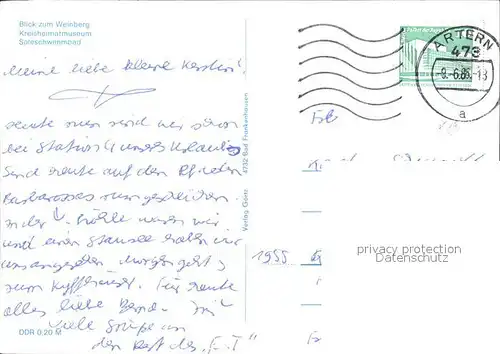 Blick zum Weinberg
Kreisheimatmuseum
Soleschwimmbad
Meine liebe kleine Kerstin!
heute nun sind wir schon
bei Station 4 unseres Urlaubs
Sind heute auf den Pfaden
Barbarossas rumgestrichen.
In der Höhle waren wir
und einen Stausee haben wir
uns angesehen. Morgen geht's
zum Kyffhäuser. Für heute
alles liebe
viele Grüße an
den Rest des "F.-T"
DDR 0,20 M
Verlag Görtz 4732 Bad Frankenhausen
ARTERN
473
-9.-6.86.-18
a
1955
privacy protection
Datenschutz